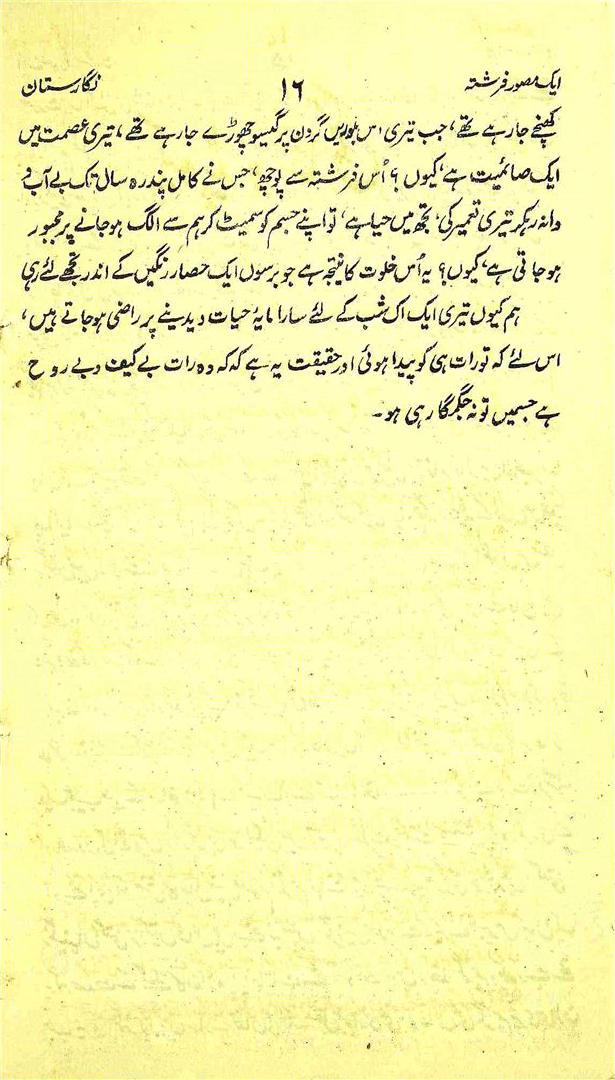 ایک مصور فرشتہ ۱۶ نگارستان
کھینچے جارہے تھے، جب تیری اس بلوریں گردن پر گیسو چھوڑے جارہے تھے، تیری عصمت میں
ایک صائمیت ہے، کیوں؟ اُس فرشتہ سے پوچھ، جس نے کامل پندرہ سال تک بے آب و
دانہ رہکر تیری تعمیر کی، تجھ میں حیا ہے، تو اپنے جسم کو سمیٹ کر ہم سے الگ ہوجانے پر مجبور
ہوجاتی ہے، کیوں؟ یہ اُس خلوت کا نتیجہ ہے جو برسوں ایک حصار رنگیں کے اندر تجھے لئے رہی
ہم کیوں تیری ایک اک شب کے لئے سارا مایۂ حیات دیدینے پر راضی ہوجاتے ہیں،
اس لئے کہ تو رات ہی کو پیدا ہوئی اور حقیقت یہ ہے کہ کہ وہ رات بے کیف و بے روح
ہے جسمیں تو نہ جگمگا رہی ہو۔